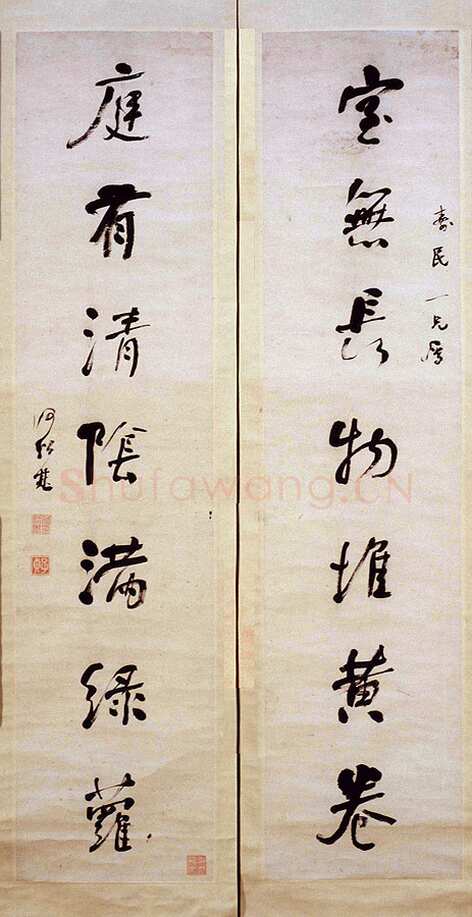 壽民一兄屬
室無長物堆黃卷
庭有清陰滿綠蘿
何紹基
Shufawang.CN